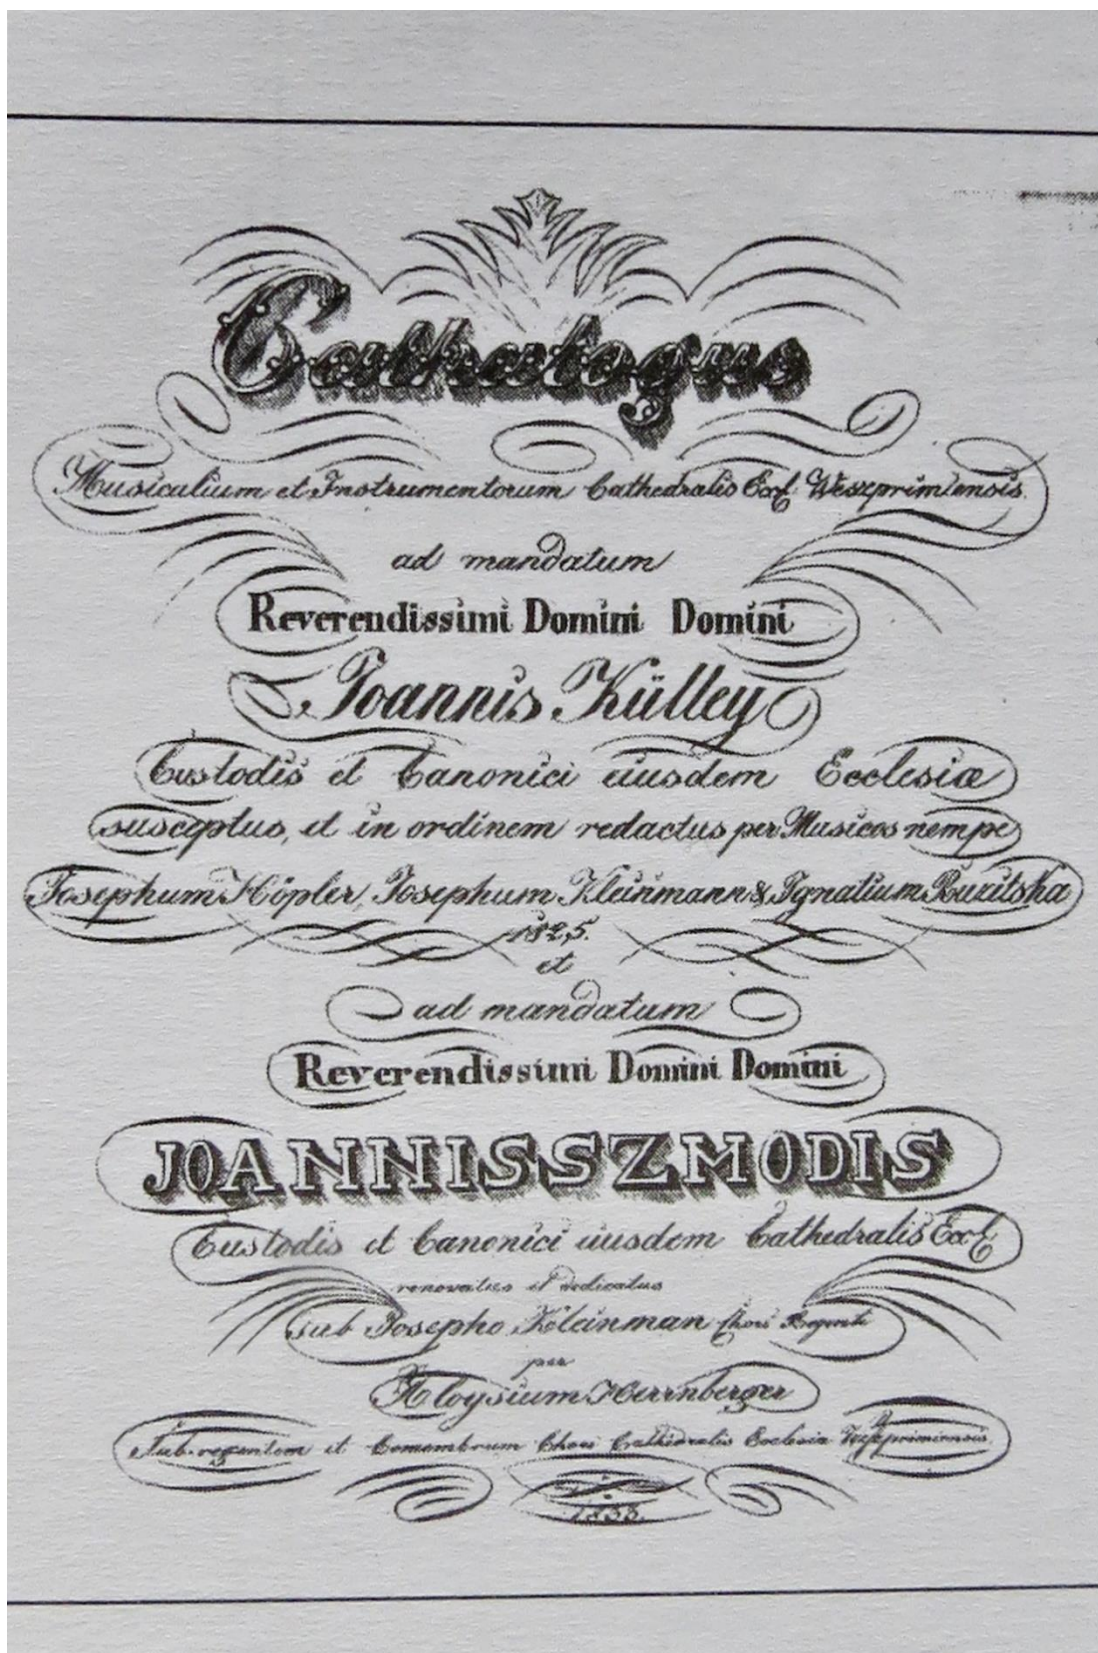 Cathalogus
Musicalium et Instrumentorum Cathedralis Eccl. Weszprimiensis
ad mandatum
Reverendissimi Domini Domini
Joannis Külley
Custodis et Canonici eiusdem Ecclesiæ
susceptus, et in ordinem redactus per Musicos nempe
Josephum Höpler, Josephum Kleinmann & Ignatium Ruzitska
1825.
et
ad mandatum
Reverendissimi Domini Domini
JOANNIS SZMODIS
Custodis et Canonici eiusdem Cathedralis Eccl.
renovatus et dedicatus
sub Josepho Kleinman Chori Regente
per
Aloysium Herrnberger
Sub-regentem et Comembrum Chori Cathedralis Ecclesiæ